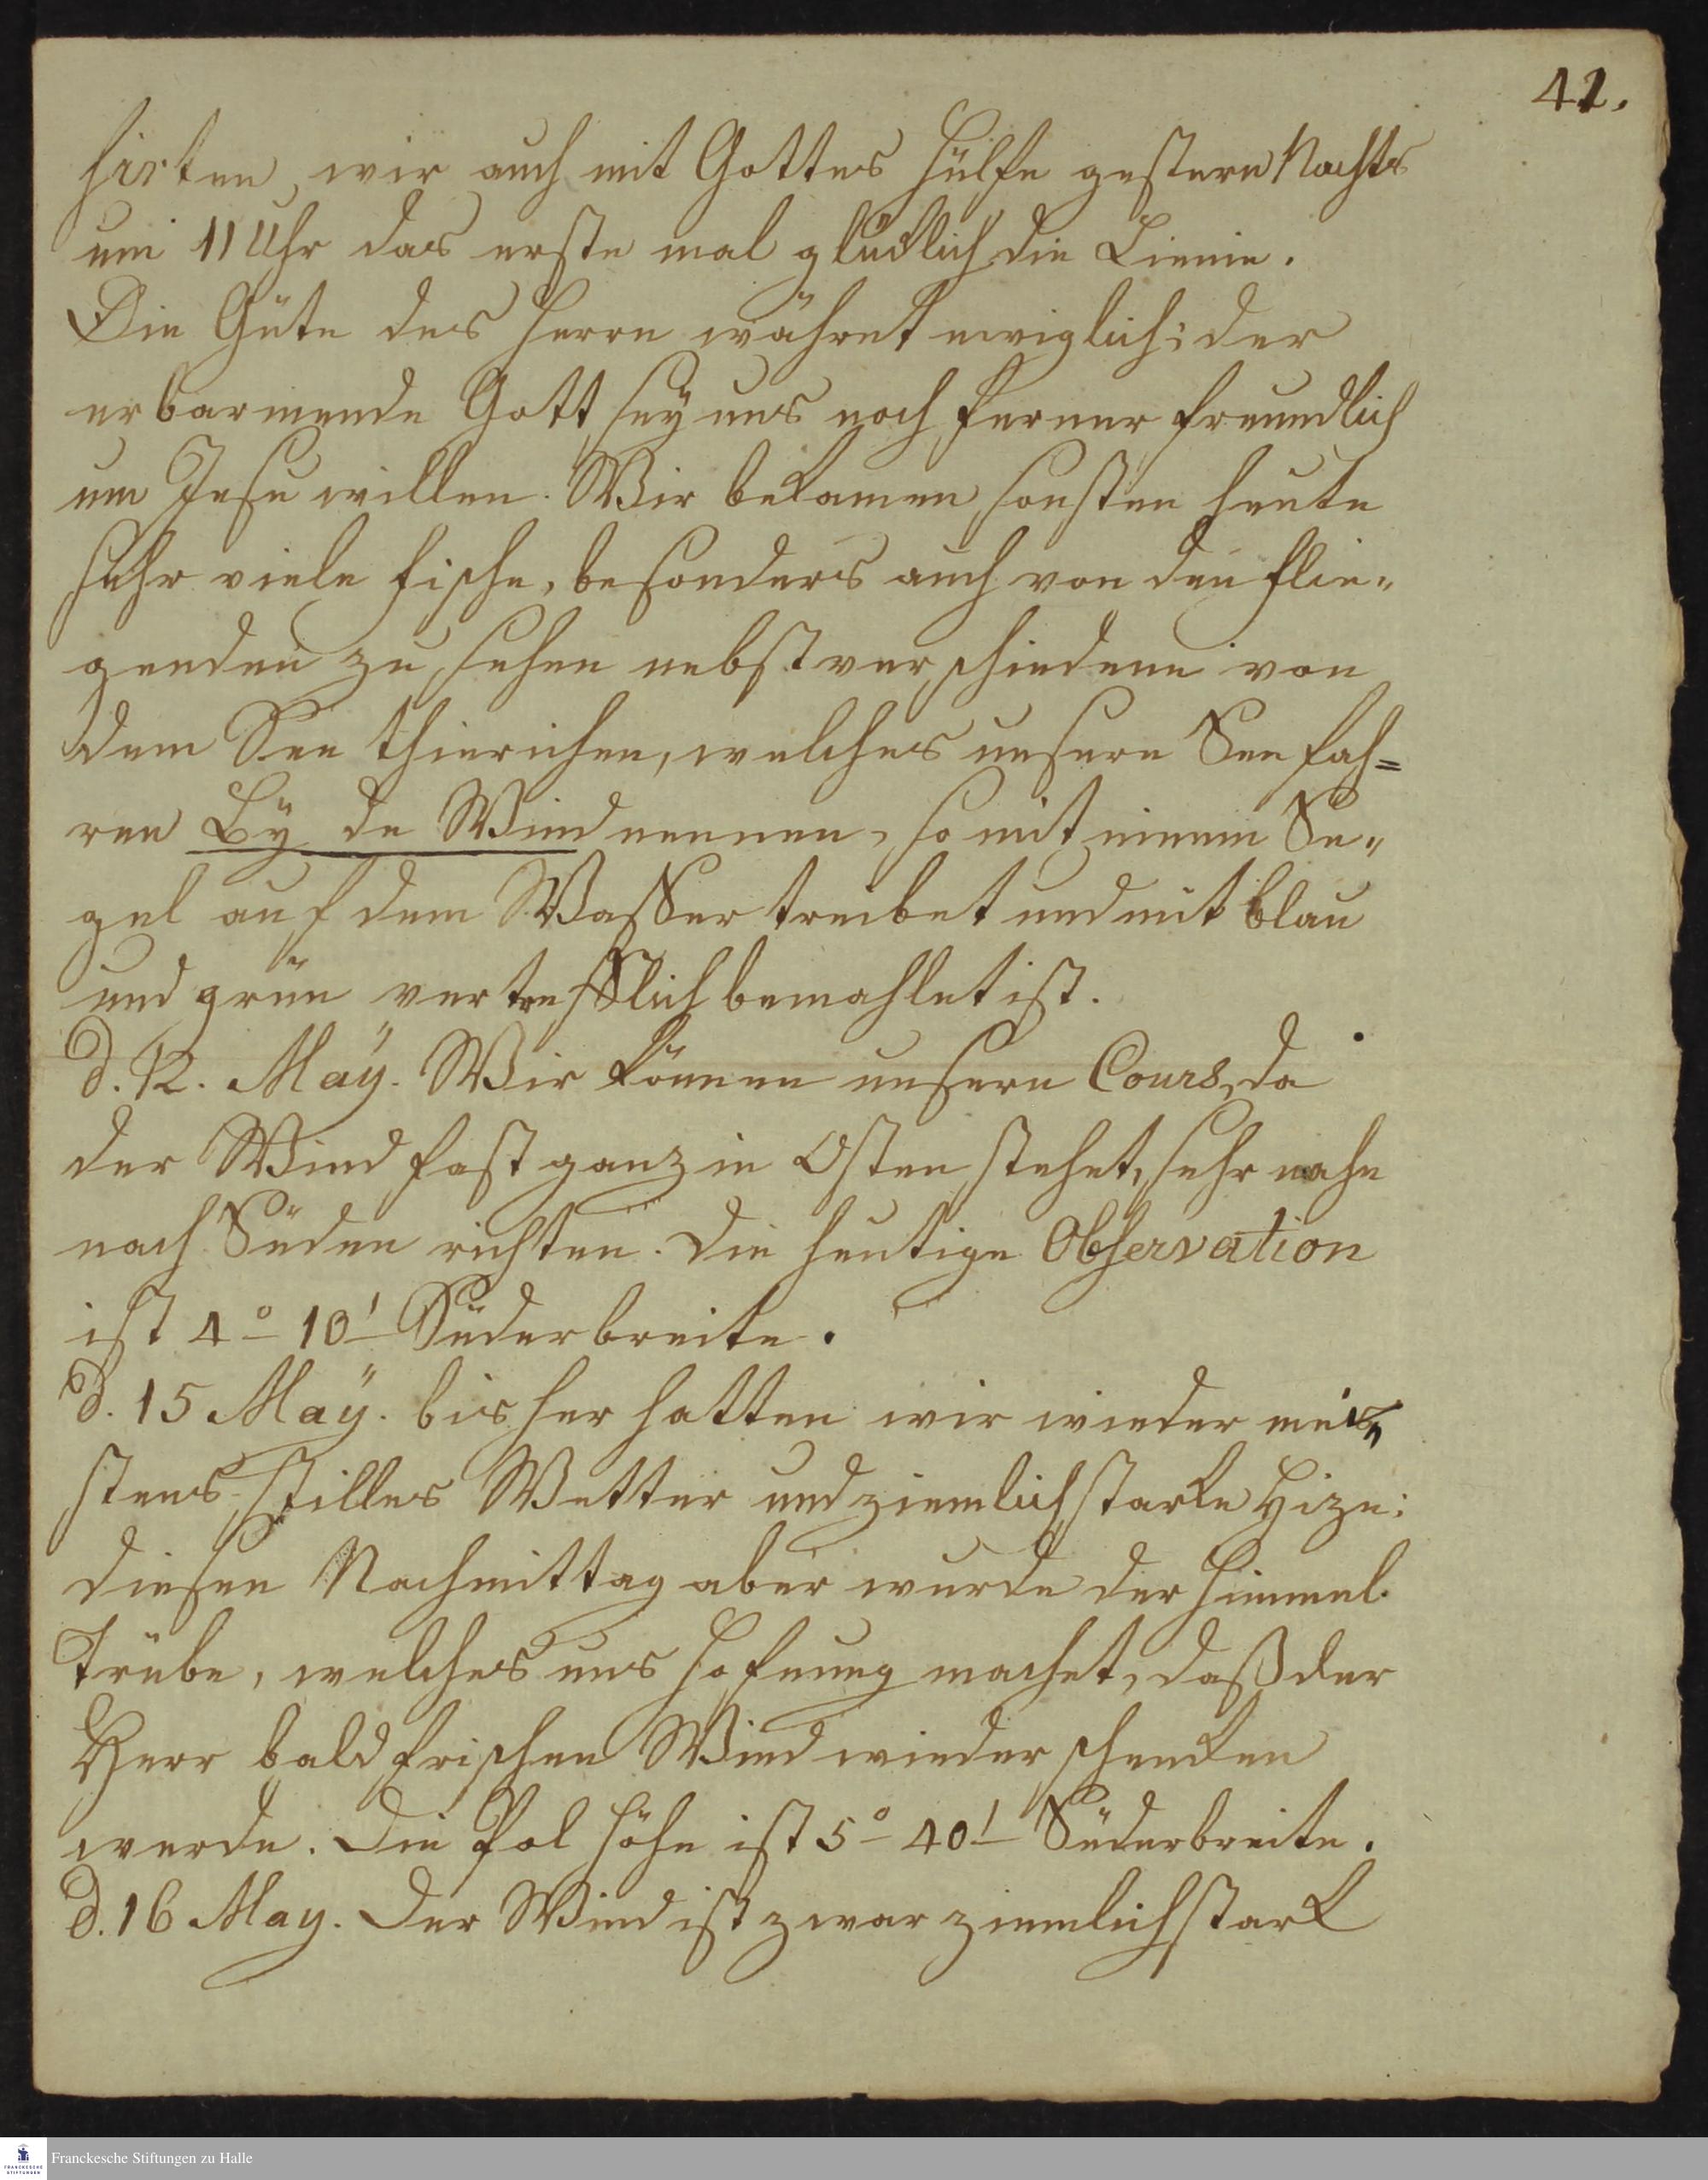 41.
sirten wir auch mit Gottes Hülfe gestern Nachts
um 11 Uhr das erste mal glücklich die Linie.
Die Güte des Herrn währet ewiglich; der
erbarmende Gott sey uns noch ferner freundlich
um Jesu willen. Wir bekamen sonsten heute
sehr viele Fische, besonders auch von den flie„
genden zu sehen nebst verschiedenen von
dem See thierichen, welches unsere See fah=
ren By de Wind nennen, so mit einem Se„
gel auf dem Waßer treibet und mit blau
und grün vortrefflich bemahlet ist.
d. 12. Maÿ. Wir können unsern Cours, da
der Wind fast ganz in Osten stehet, sehr nahe
nach Süden richten. Die heutige Observation
ist 4° 10' Süderbreite.
d. 15 Maÿ. bisher hatten wir wieder mei„
stens stilles Wetter und ziemlich starke Hize:
diesen Nachmittag aber wurde der Himmel
trübe, welches uns Hofnung machet, daß der
Herr bald frischen Wind wieder schenken
werde. Die Pol Höhe ist 5° 40' Süderbreite.
d. 16 May. Der Wind ist zwar ziemlich stark
Franckesche Stiftungen zu Halle